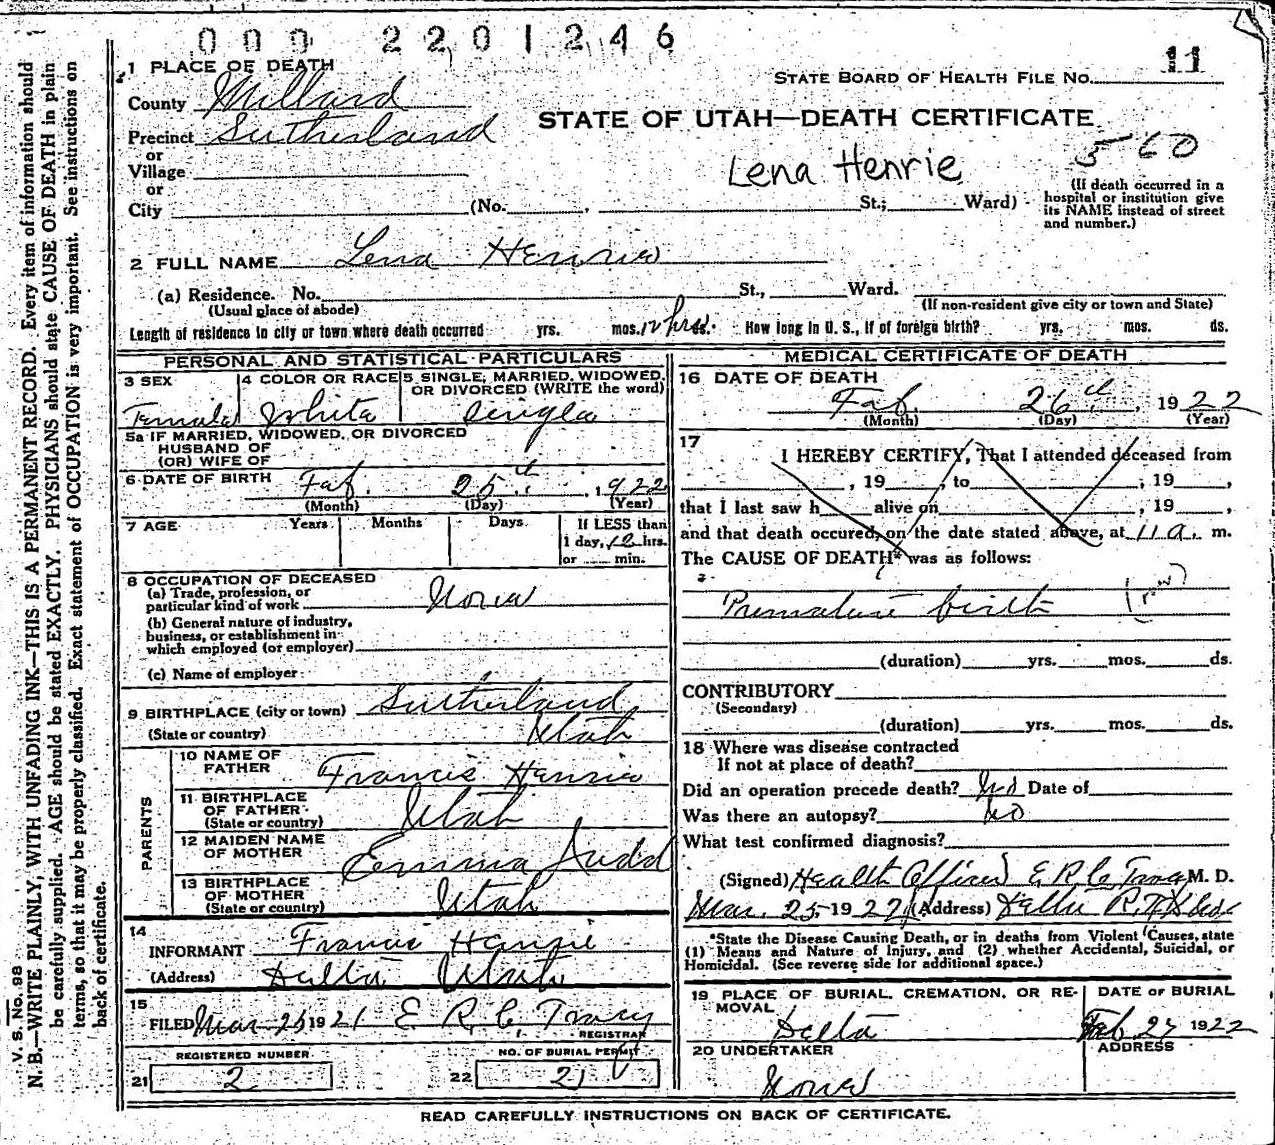 000 2201246
11
1 PLACE OF DEATH
STATE BOARD OF HEALTH FILE NO.
County Millard
STATE OF UTAH—DEATH CERTIFICATE
Precinct Sutherland
or
Village
or
City (No. , St.; Ward)
Lena Henrie
560
(If death occurred in a
hospital or institution give
its NAME instead of street
and number.)
2 FULL NAME Lena Henrie
(a) Residence. No. St., Ward.
(Usual place of abode) (If non-resident give city or town and State)
Length of residence in city or town where death occurred yrs. mos. 12 hrs. How long in U. S., if of foreign birth? yrs. mos. ds.
PERSONAL AND STATISTICAL PARTICULARS
3 SEX 4 COLOR OR RACE 5 SINGLE, MARRIED, WIDOWED,
OR DIVORCED (WRITE the word)
Female White Single
5a IF MARRIED, WIDOWED, OR DIVORCED
HUSBAND OF
(OR) WIFE OF
6 DATE OF BIRTH Feb. 25th, 1922
(Month) (Day) (Year)
7 AGE Years Months Days If LESS than
1 day, 12 hrs.
or min.
8 OCCUPATION OF DECEASED
(a) Trade, profession, or
particular kind of work None
(b) General nature of industry,
business, or establishment in
which employed (or employer)
(c) Name of employer
9 BIRTHPLACE (city or town) Sutherland
(State or country) Utah
PARENTS
10 NAME OF
FATHER Francis Henrie
11 BIRTHPLACE
OF FATHER Utah
(State or country)
12 MAIDEN NAME
OF MOTHER Emma Judd
13 BIRTHPLACE
OF MOTHER Utah
(State or country)
14
INFORMANT Francis Henrie
(Address) Delta Utah
15
FILED Mar 25 1921 E. R. C. Tracy
REGISTRAR
REGISTERED NUMBER NO. OF BURIAL PERMIT
21 2 22 21
MEDICAL CERTIFICATE OF DEATH
16 DATE OF DEATH
Feb. 26th, 1922
(Month) (Day) (Year)
17
I HEREBY CERTIFY, That I attended deceased from
, 19 , to , 19 ,
that I last saw h alive on , 19 ,
and that death occured, on the date stated above, at 11 a. m.
The CAUSE OF DEATH* was as follows:
Premature birth
(duration) yrs. mos. ds.
CONTRIBUTORY
(Secondary)
(duration) yrs. mos. ds.
18 Where was disease contracted
If not at place of death?
Did an operation precede death? No Date of
Was there an autopsy? No
What test confirmed diagnosis?
(Signed) Health Officer E R C Tracy M. D.
Mar. 25 1922 (Address) Delta
*State the Disease Causing Death, or in deaths from Violent Causes, state
(1) Means and Nature of Injury, and (2) whether Accidental, Suicidal, or
Homicidal. (See reverse side for additional space.)
19 PLACE OF BURIAL, CREMATION, OR RE-
MOVAL
Delta
DATE OF BURIAL
Feb 27 1922
20 UNDERTAKER
None
ADDRESS
READ CAREFULLY INSTRUCTIONS ON BACK OF CERTIFICATE.
V. S. No. 98
N. B.—WRITE PLAINLY, WITH UNFADING INK—THIS IS A PERMANENT RECORD. Every item of information should
be carefully supplied. AGE should be stated EXACTLY. PHYSICIANS should state CAUSE OF DEATH in plain
terms, so that it may be properly classified. Exact statement of OCCUPATION is very important. See instructions on
back of certificate.